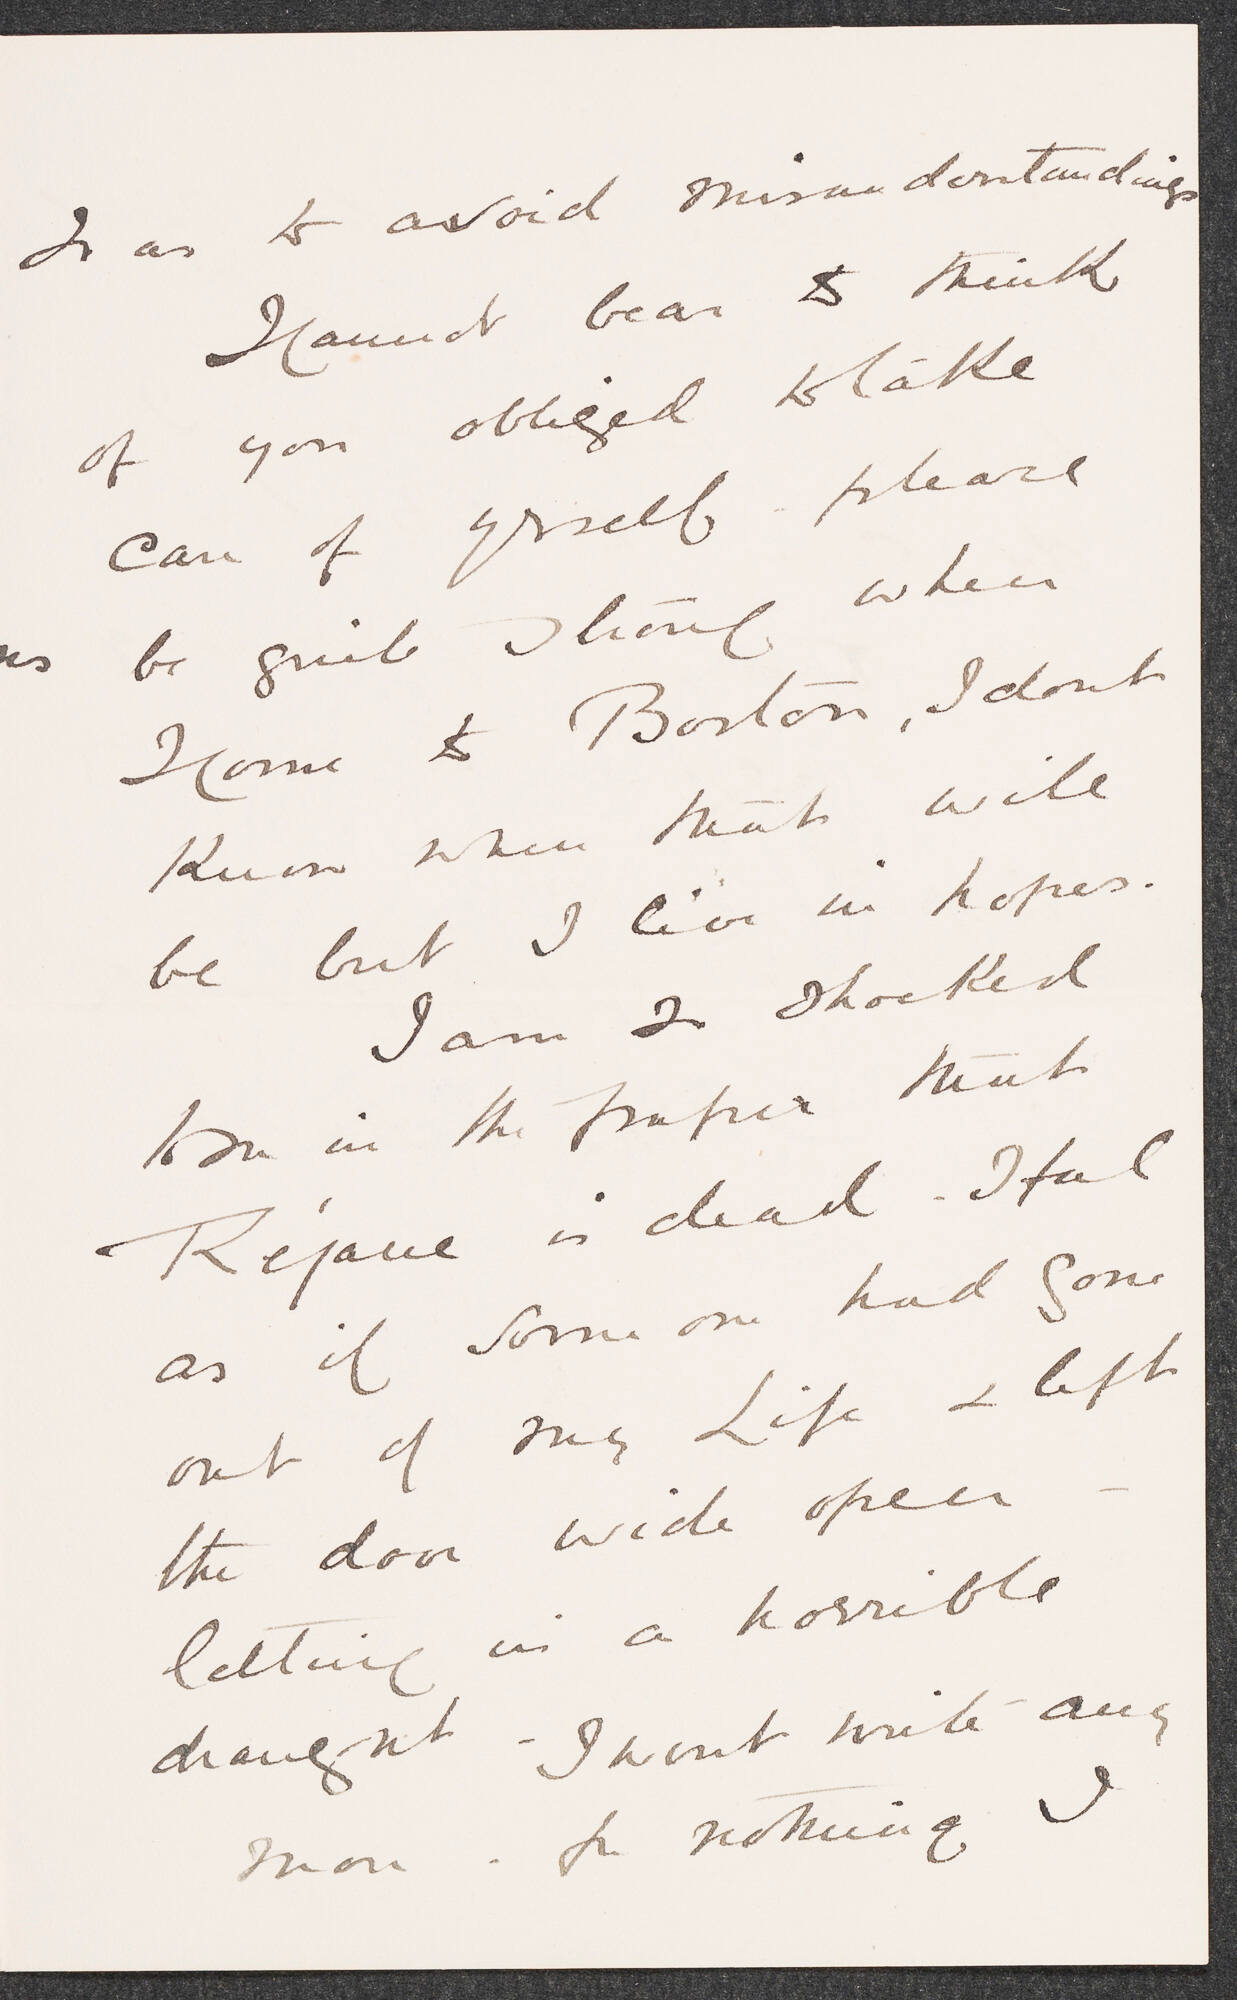 So as to avoid misunderstandings
I cannot bear to think
of you obliged to take
care of yrself - please
be quite strong when
I come to Boston, I dont
know when that will
be but I live in hopes.
I am so shocked
to see in the paper that
Réjane is dead - I feel
as if some one had gone
out of my Life & left
the door wide open -
letting in a horrible
draught - I wont write any
more - for nothing I